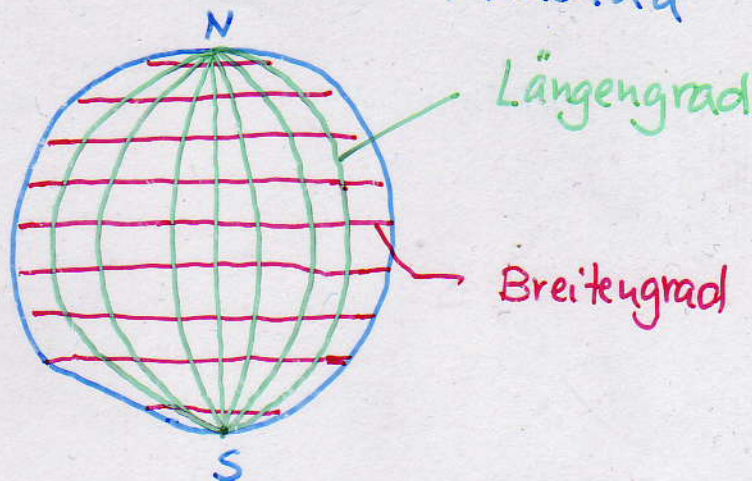 N
Längengrad
Breitengrad
S